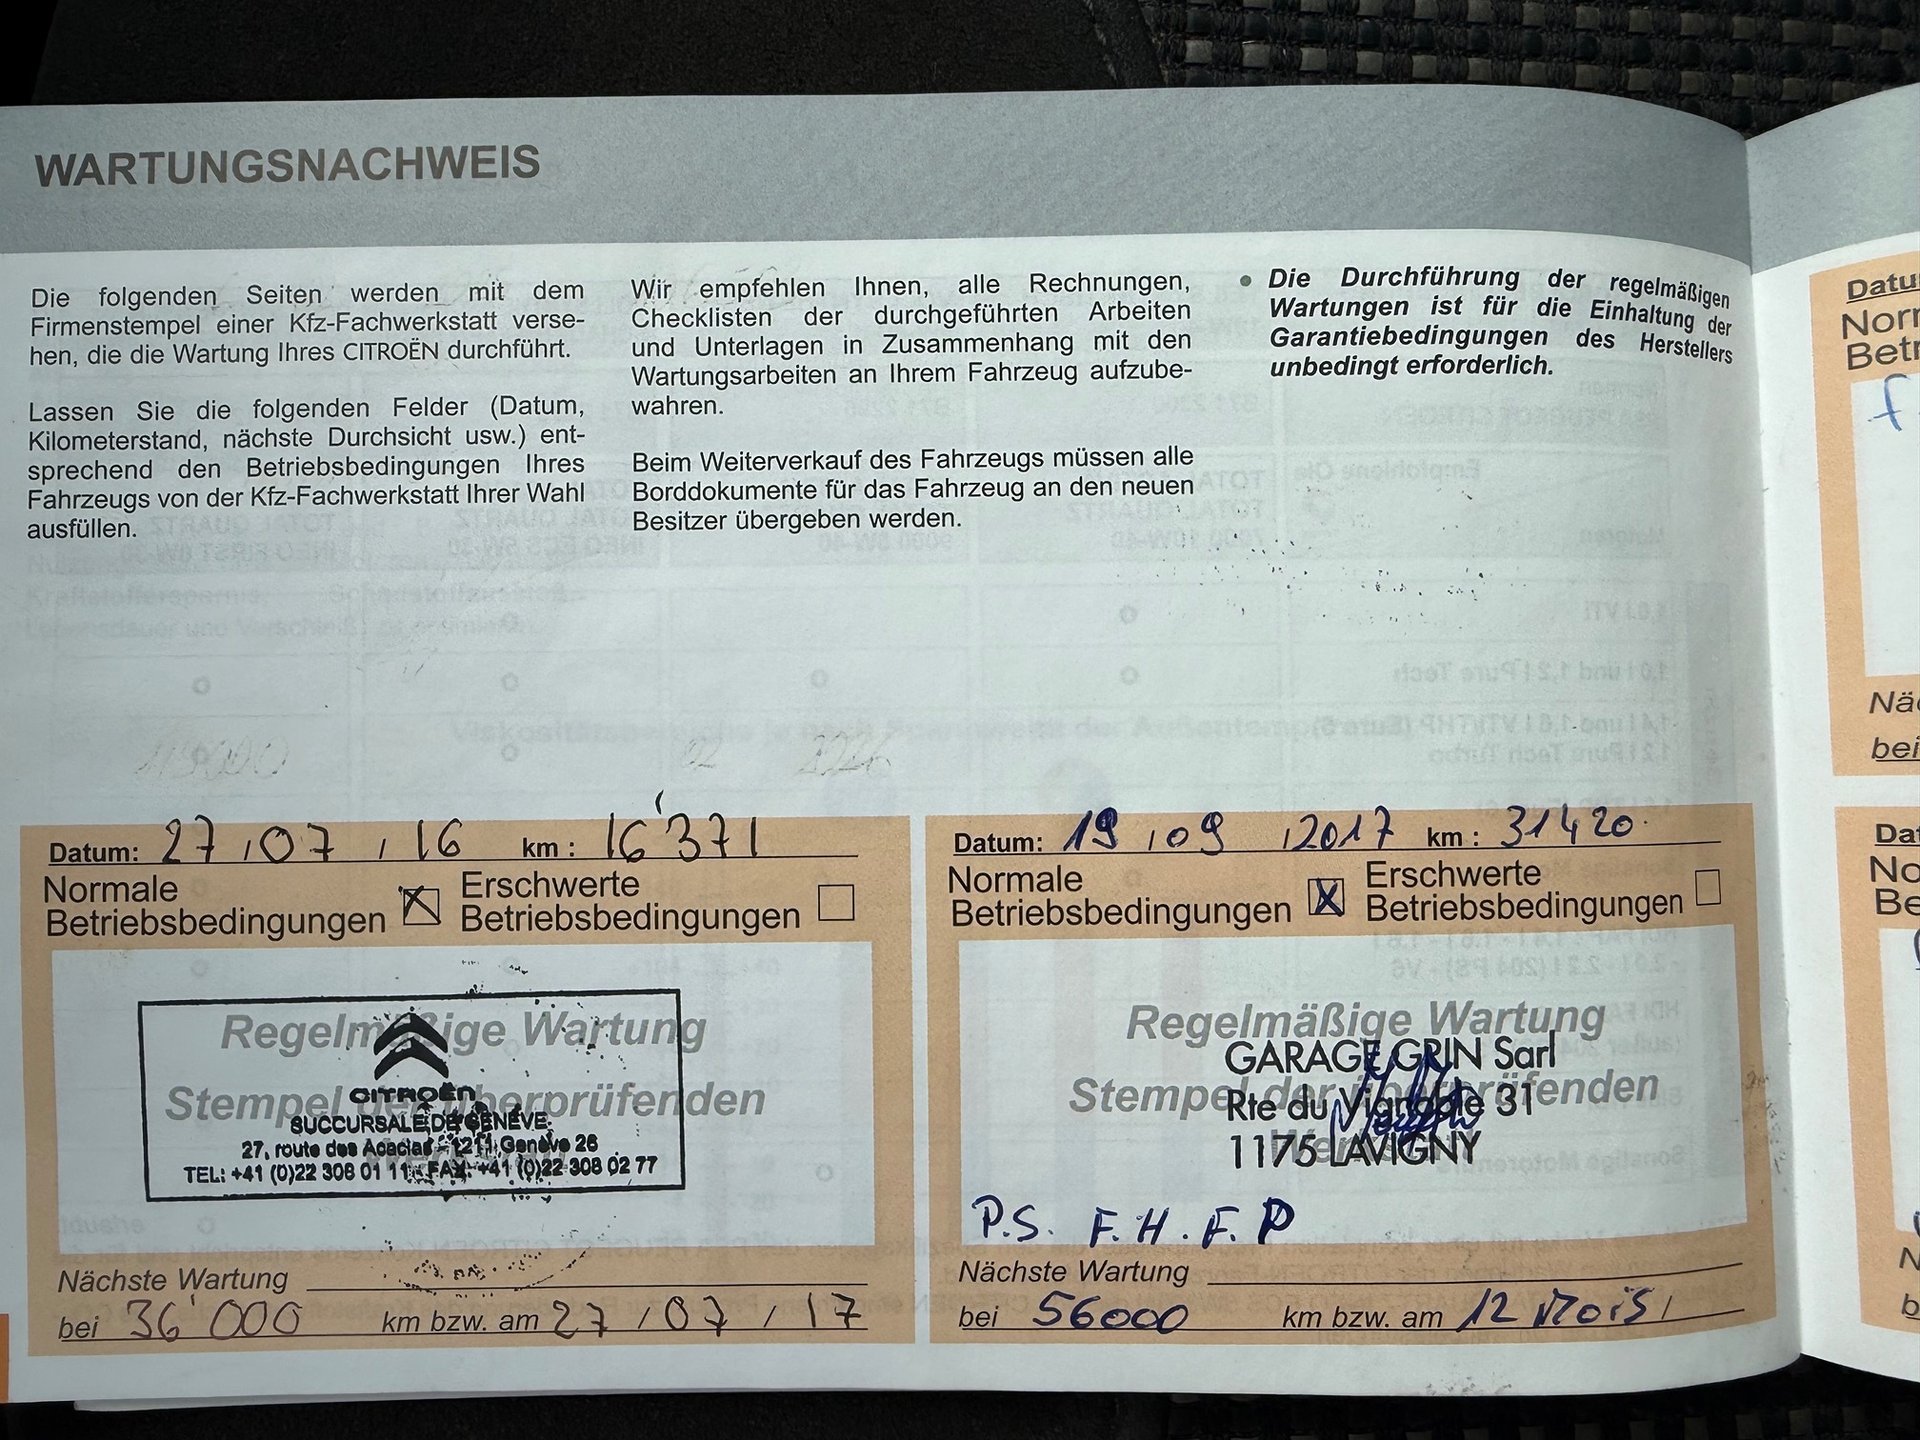 WARTUNGSNACHWEIS
Die folgenden Seiten werden mit dem
Firmenstempel einer Kfz-Fachwerkstatt verse-
hen, die die Wartung Ihres CITROËN durchführt.
Lassen Sie die folgenden Felder (Datum,
Kilometerstand, nächste Durchsicht usw.) ent-
sprechend den Betriebsbedingungen Ihres
Fahrzeugs von der Kfz-Fachwerkstatt Ihrer Wahl
ausfüllen.
Wir empfehlen Ihnen, alle Rechnungen,
Checklisten der durchgeführten Arbeiten
und Unterlagen in Zusammenhang mit den
Wartungsarbeiten an Ihrem Fahrzeug aufzube-
wahren.
Beim Weiterverkauf des Fahrzeugs müssen alle
Borddokumente für das Fahrzeug an den neuen
Besitzer übergeben werden.
• Die Durchführung der regelmäßigen
Wartungen ist für die Einhaltung der
Garantiebedingungen des Herstellers
unbedingt erforderlich.
Datum: 27 / 07 / 16 km : 16'371
Normale
Betriebsbedingungen
Erschwerte
Betriebsbedingungen
Regelmäßige Wartung
Stempel der überprüfenden
CITROËN
SUCCURSALE DE GENÈVE
27, route des Acacias - 1211 Genève 26
TEL: +41 (0)22 308 01 11 - FAX: +41 (0)22 308 02 77
Nächste Wartung
bei 36'000 km bzw. am 27 / 07 / 17
Datum: 19 / 09 / 2017 km : 31420
Normale
Betriebsbedingungen
Erschwerte
Betriebsbedingungen
Regelmäßige Wartung
GARAGE GRIN Sarl
Stempel der überprüfenden
Rte du Vignoble 31
1175 LAVIGNY
P.S. F.H.F.P
Nächste Wartung
bei 56000 km bzw. am 12 Mois /